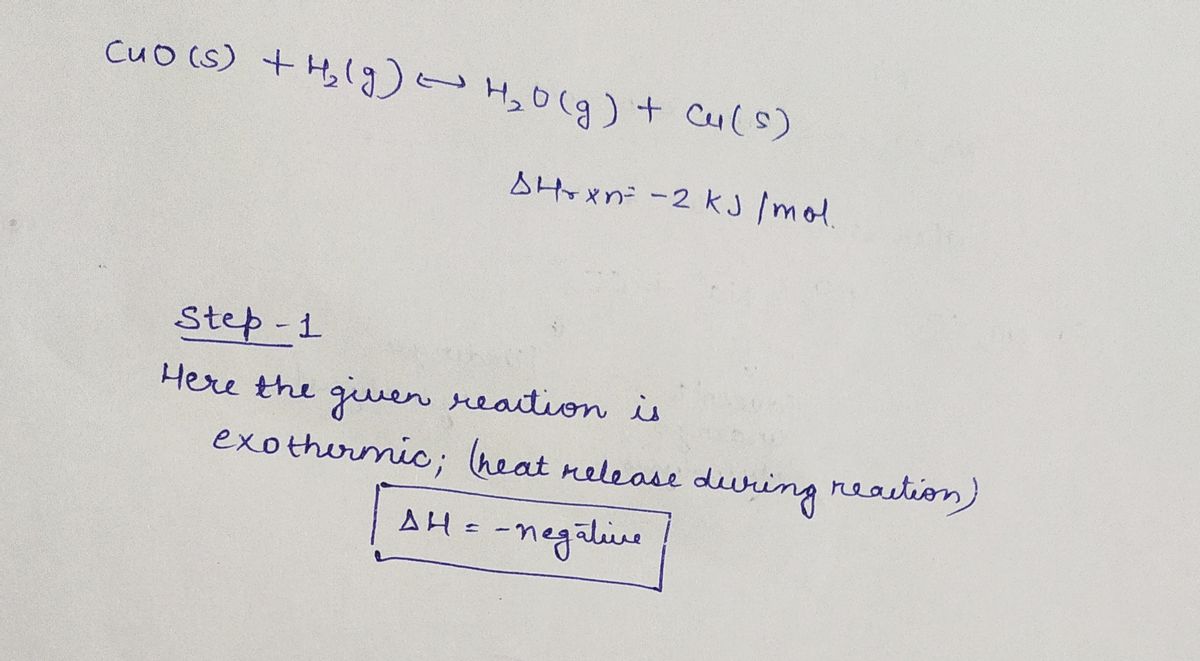 CuO (s) + H₂(g) ⟷ H₂O(g) + Cu(s)
ΔHrxn = -2 kJ/mol.
Step-1
Here the given reaction is
exothermic; (heat release during reaction)
ΔH = -negative